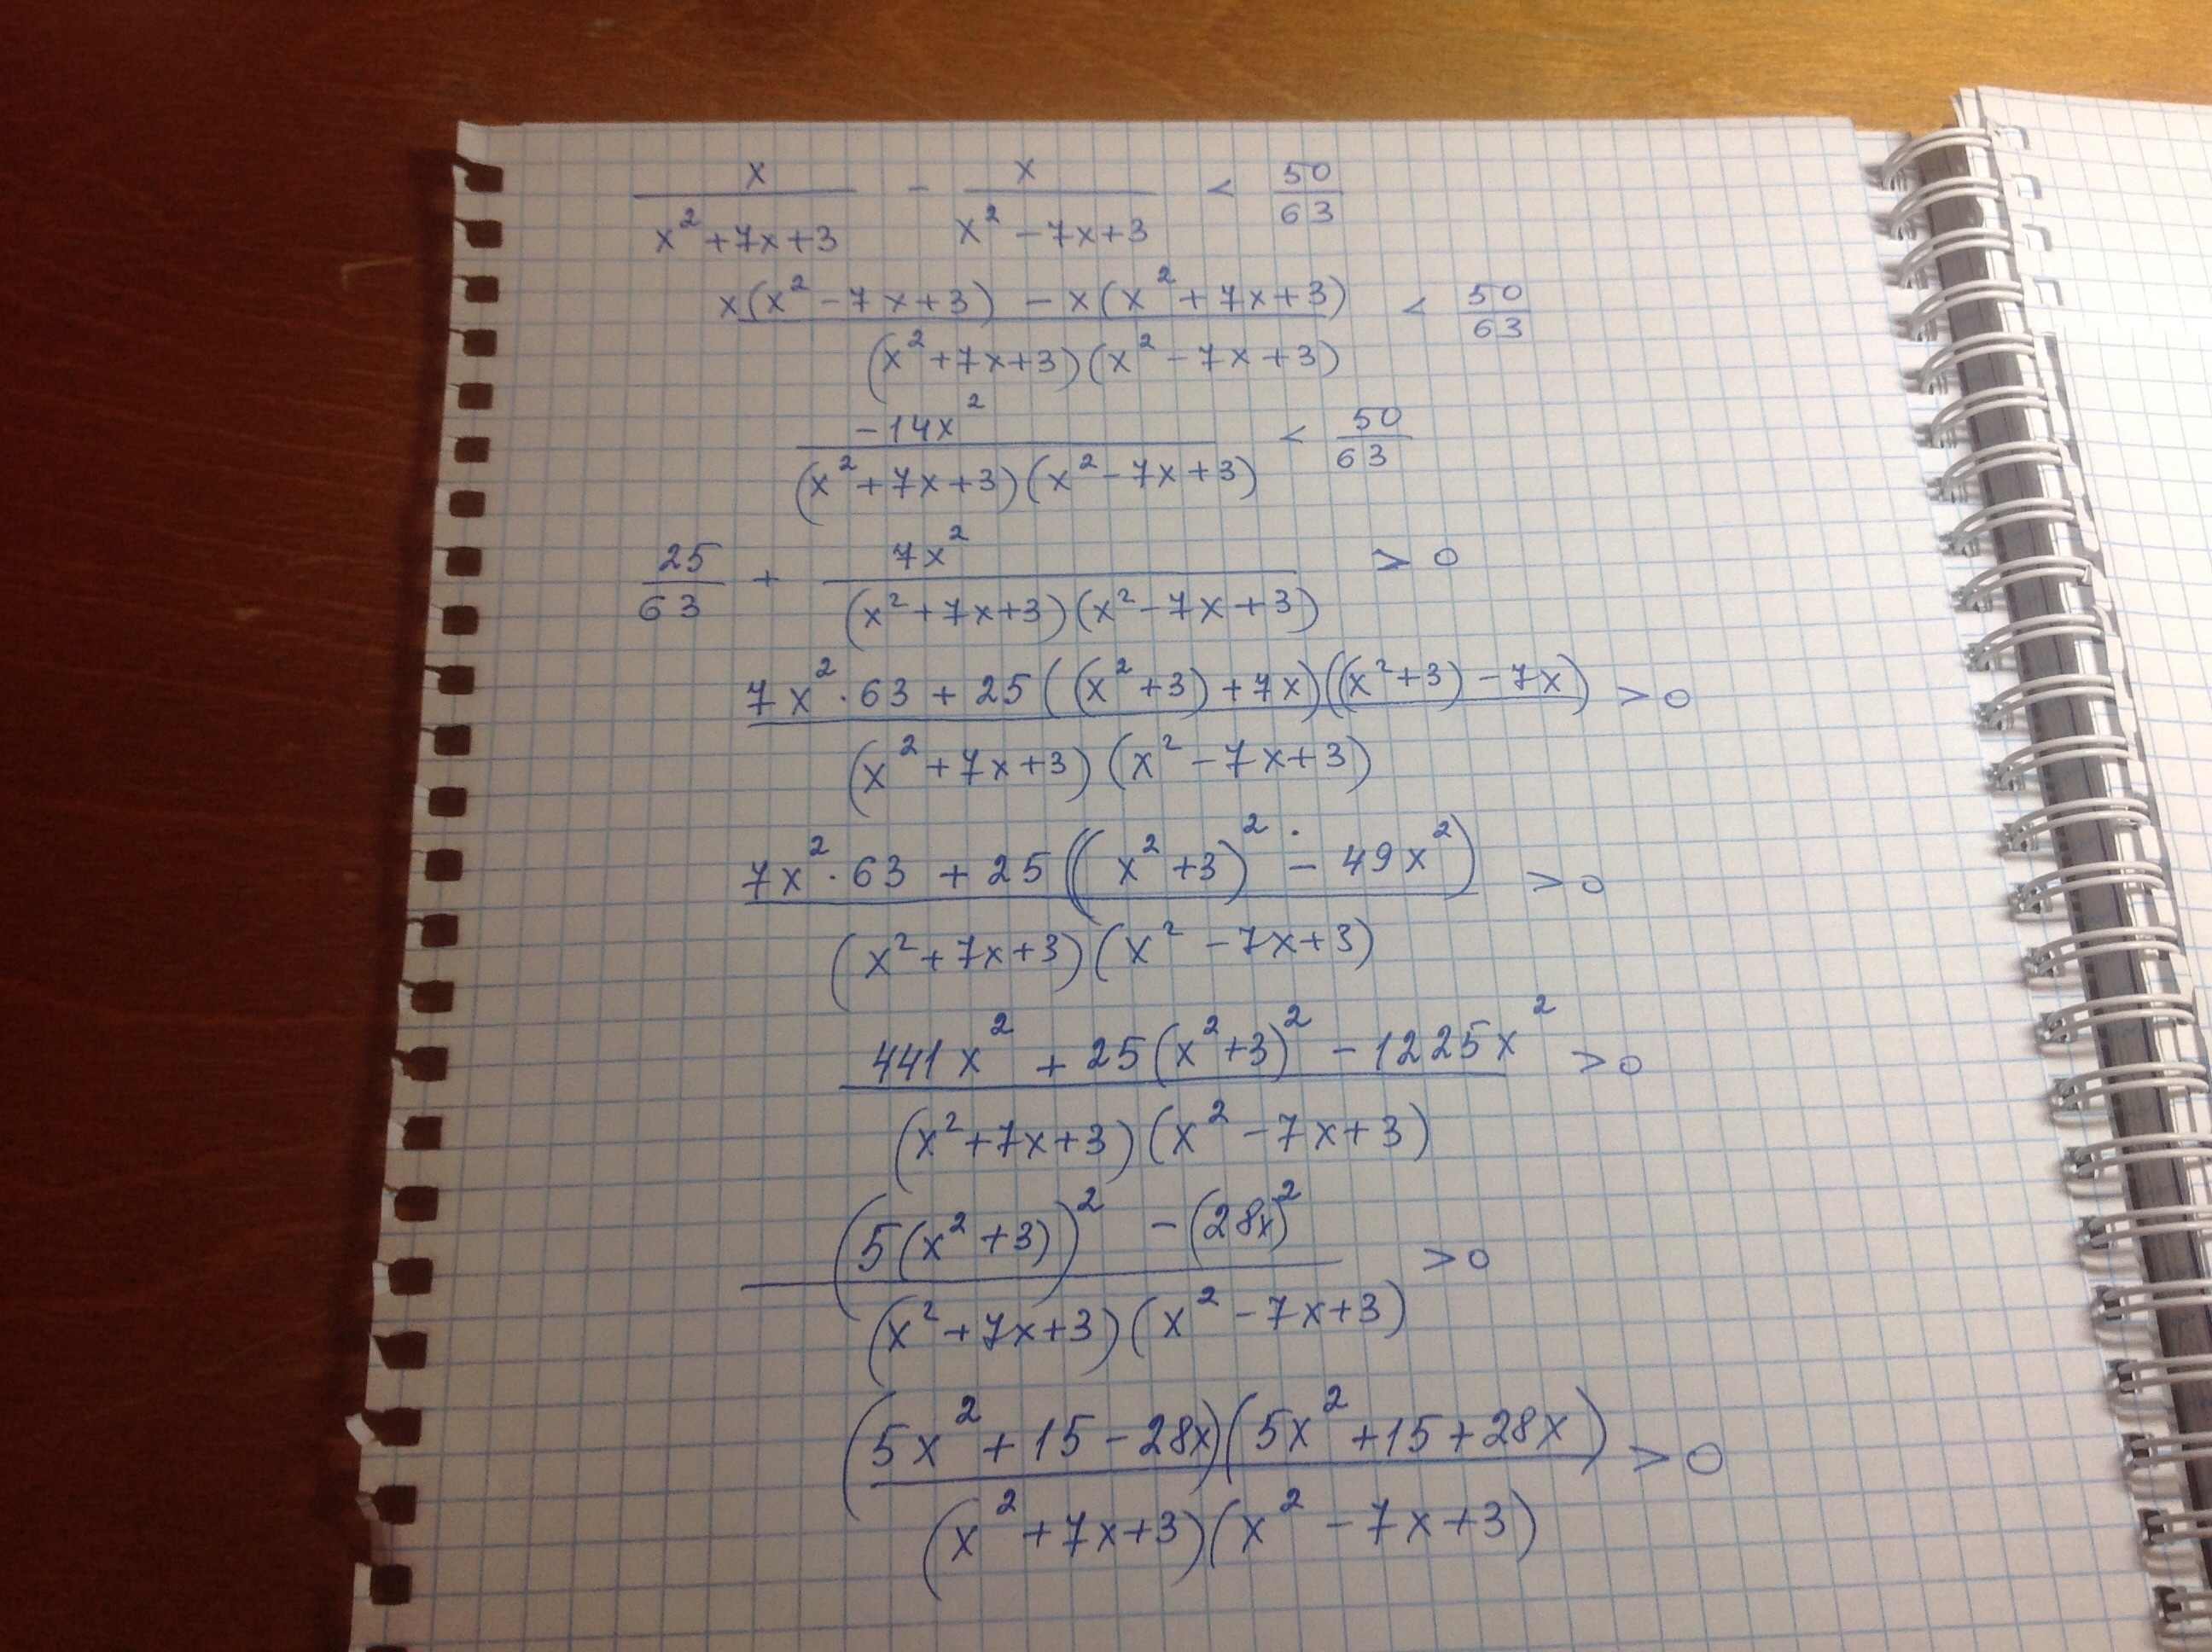 x/(x²+7x+3) - x/(x²-7x+3) < 50/63
(x(x²-7x+3) - x(x²+7x+3))/((x²+7x+3)(x²-7x+3)) < 50/63
-14x²/((x²+7x+3)(x²-7x+3)) < 50/63
25/63 + 7x²/((x²+7x+3)(x²-7x+3)) > 0
(7x²·63 + 25((x²+3)+7x)((x²+3)-7x))/((x²+7x+3)(x²-7x+3)) > 0
(7x²·63 + 25((x²+3)² - 49x²))/((x²+7x+3)(x²-7x+3)) > 0
(441x² + 25(x²+3)² - 1225x²)/((x²+7x+3)(x²-7x+3)) > 0
((5(x²+3))² - (28x)²)/((x²+7x+3)(x²-7x+3)) > 0
((5x²+15-28x)(5x²+15+28x))/((x²+7x+3)(x²-7x+3)) > 0